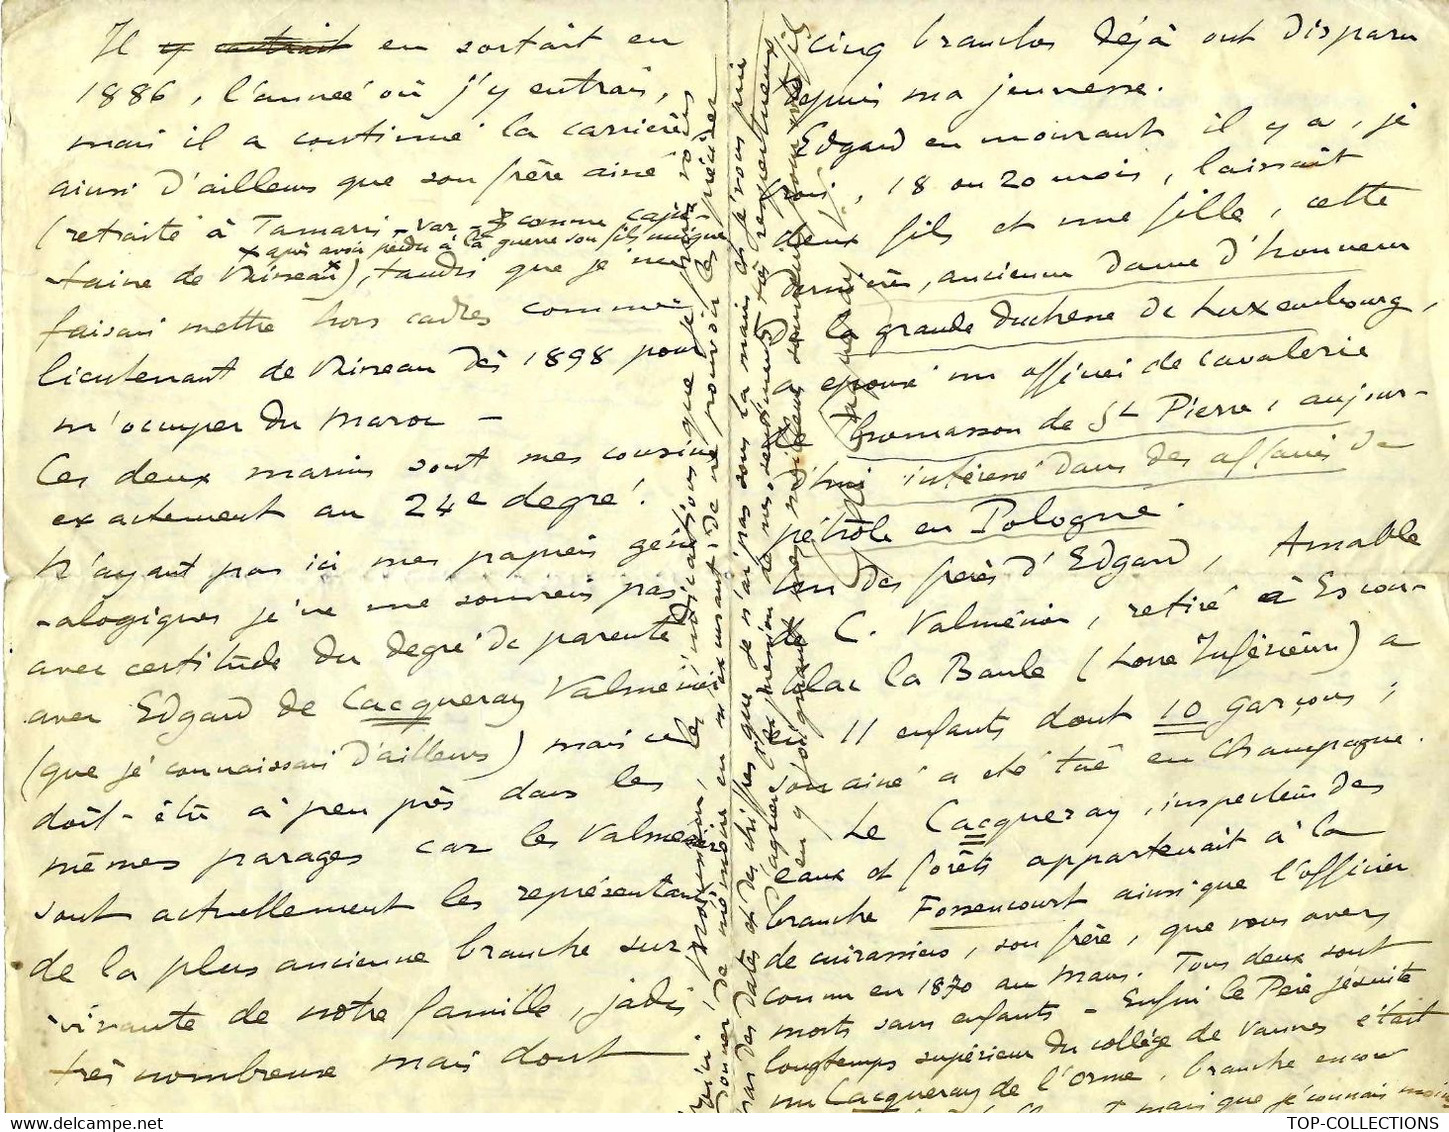 Il y entrait en sortait en
1886, l'année où j'y entrais,
mais il a continué la carrière
ainsi d'ailleurs que son frère ainé
(retraité à Tamaris - Var - comme capi-
x après avoir perdu à la guerre son fils unique
taine de Vaisseau x), tandis que je me
faisais mettre hors cadres comme
lieutenant de Vaisseau dès 1898 pour
m'occuper du Maroc —
Ces deux marins sont mes cousins
exactement au 24e degré!
N'ayant pas ici mes papiers géné
-alogiques je ne me souviens pas
avec certitude du degré de parenté
avec Edgard de Cacqueray Valménier
(que je connaissais d'ailleurs) mais ce
doit-être à peu près dans les
mêmes parages car les Valmenier
sont actuellement les représentants
de la plus ancienne branche sur-
vivante de notre famille, jadis
très nombreuse mais dont
cinq branches déjà ont disparu
depuis ma jeunesse.
Edgard en mourant il y a, je
crois, 18 ou 20 mois, laissait
deux fils et une fille, cette
dernière, ancienne dame d'honneur
de la grande duchesse de Luxembourg,
a épousé un officier de cavalerie
Thomasson de St Pierre, aujour-
d'hui intéressé dans des affaires de
pétrole en Pologne.
Un des frères d'Edgard, Amable
de C. Valménier, retiré à Escou-
blac la Baule (Loire Inférieure) a
eu 11 enfants dont 10 garçons;
son ainé a été tué en Champagne.
Le Cacqueray, inspecteur des
eaux et forêts appartenait à la
branche Fossencourt ainsi que l'officier
de cuirassiers, son frère, que vous avez
connu en 1870 au Mans. Tous deux sont
morts sans enfants — Enfin le Père jésuite
longtemps supérieur du collège de Vannes était
un Cacqueray de l'Orme, branche encore
mais que je connais moins
Monsieur, les indications que je puis vous
donner de mémoire en m'excusant de ne pouvoir les préciser
par des dates et des chiffres que je n'ai pas sous la main et je vous prie
d'agréer l'expression de mes sentiments très respectueux
TOP-COLLECTIONS